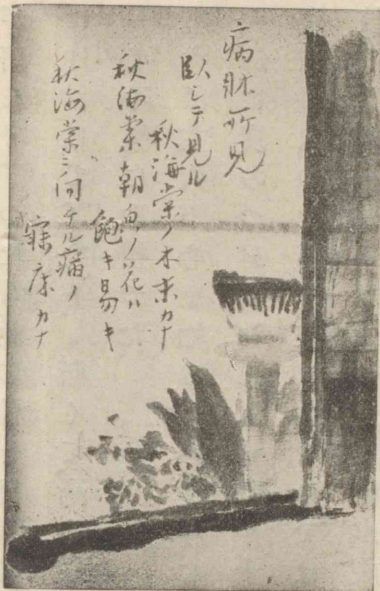 病牀所見
臥シテ見ル
秋海棠ノ木末カナ
秋海棠朝㒵ノ花ハ
飽キ易キ
秋海棠ニ向ケル病ノ
寐床カナ